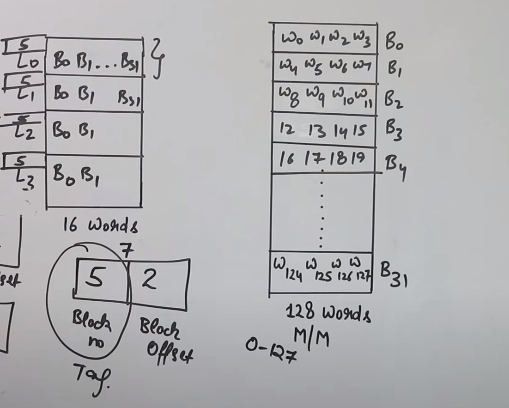 5
L0 B0 B1...B31
5
L1 B0 B1 B31
5
L2 B0 B1
5
L3 B0 B1
16 words
7
5 2
Block no
Block Offset
Tag.
set
W0 W1 W2 W3 B0
W4 W5 W6 W7 B1
W8 W9 W10 W11 B2
12 13 14 15 B3
16 17 18 19 B4
W124 W125 W126 W127 B31
128 words
M/M
0-127